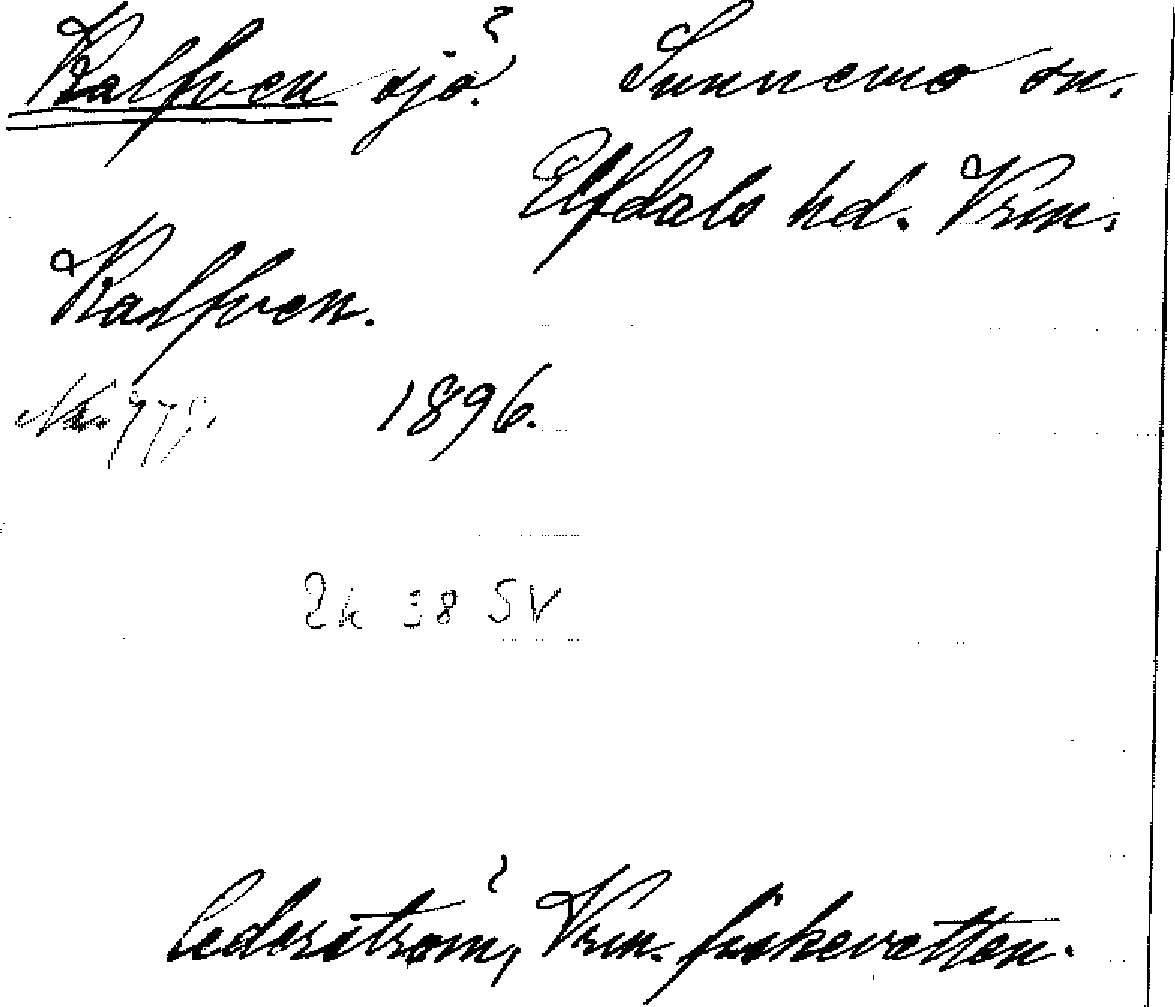 Kalfven sjö. Sunnemo sn.
Elfdals hd. Vrm.
Kalfven.
No 778. 1896.
2k 38 SV
Cederström, Vrm. fiskevatten.